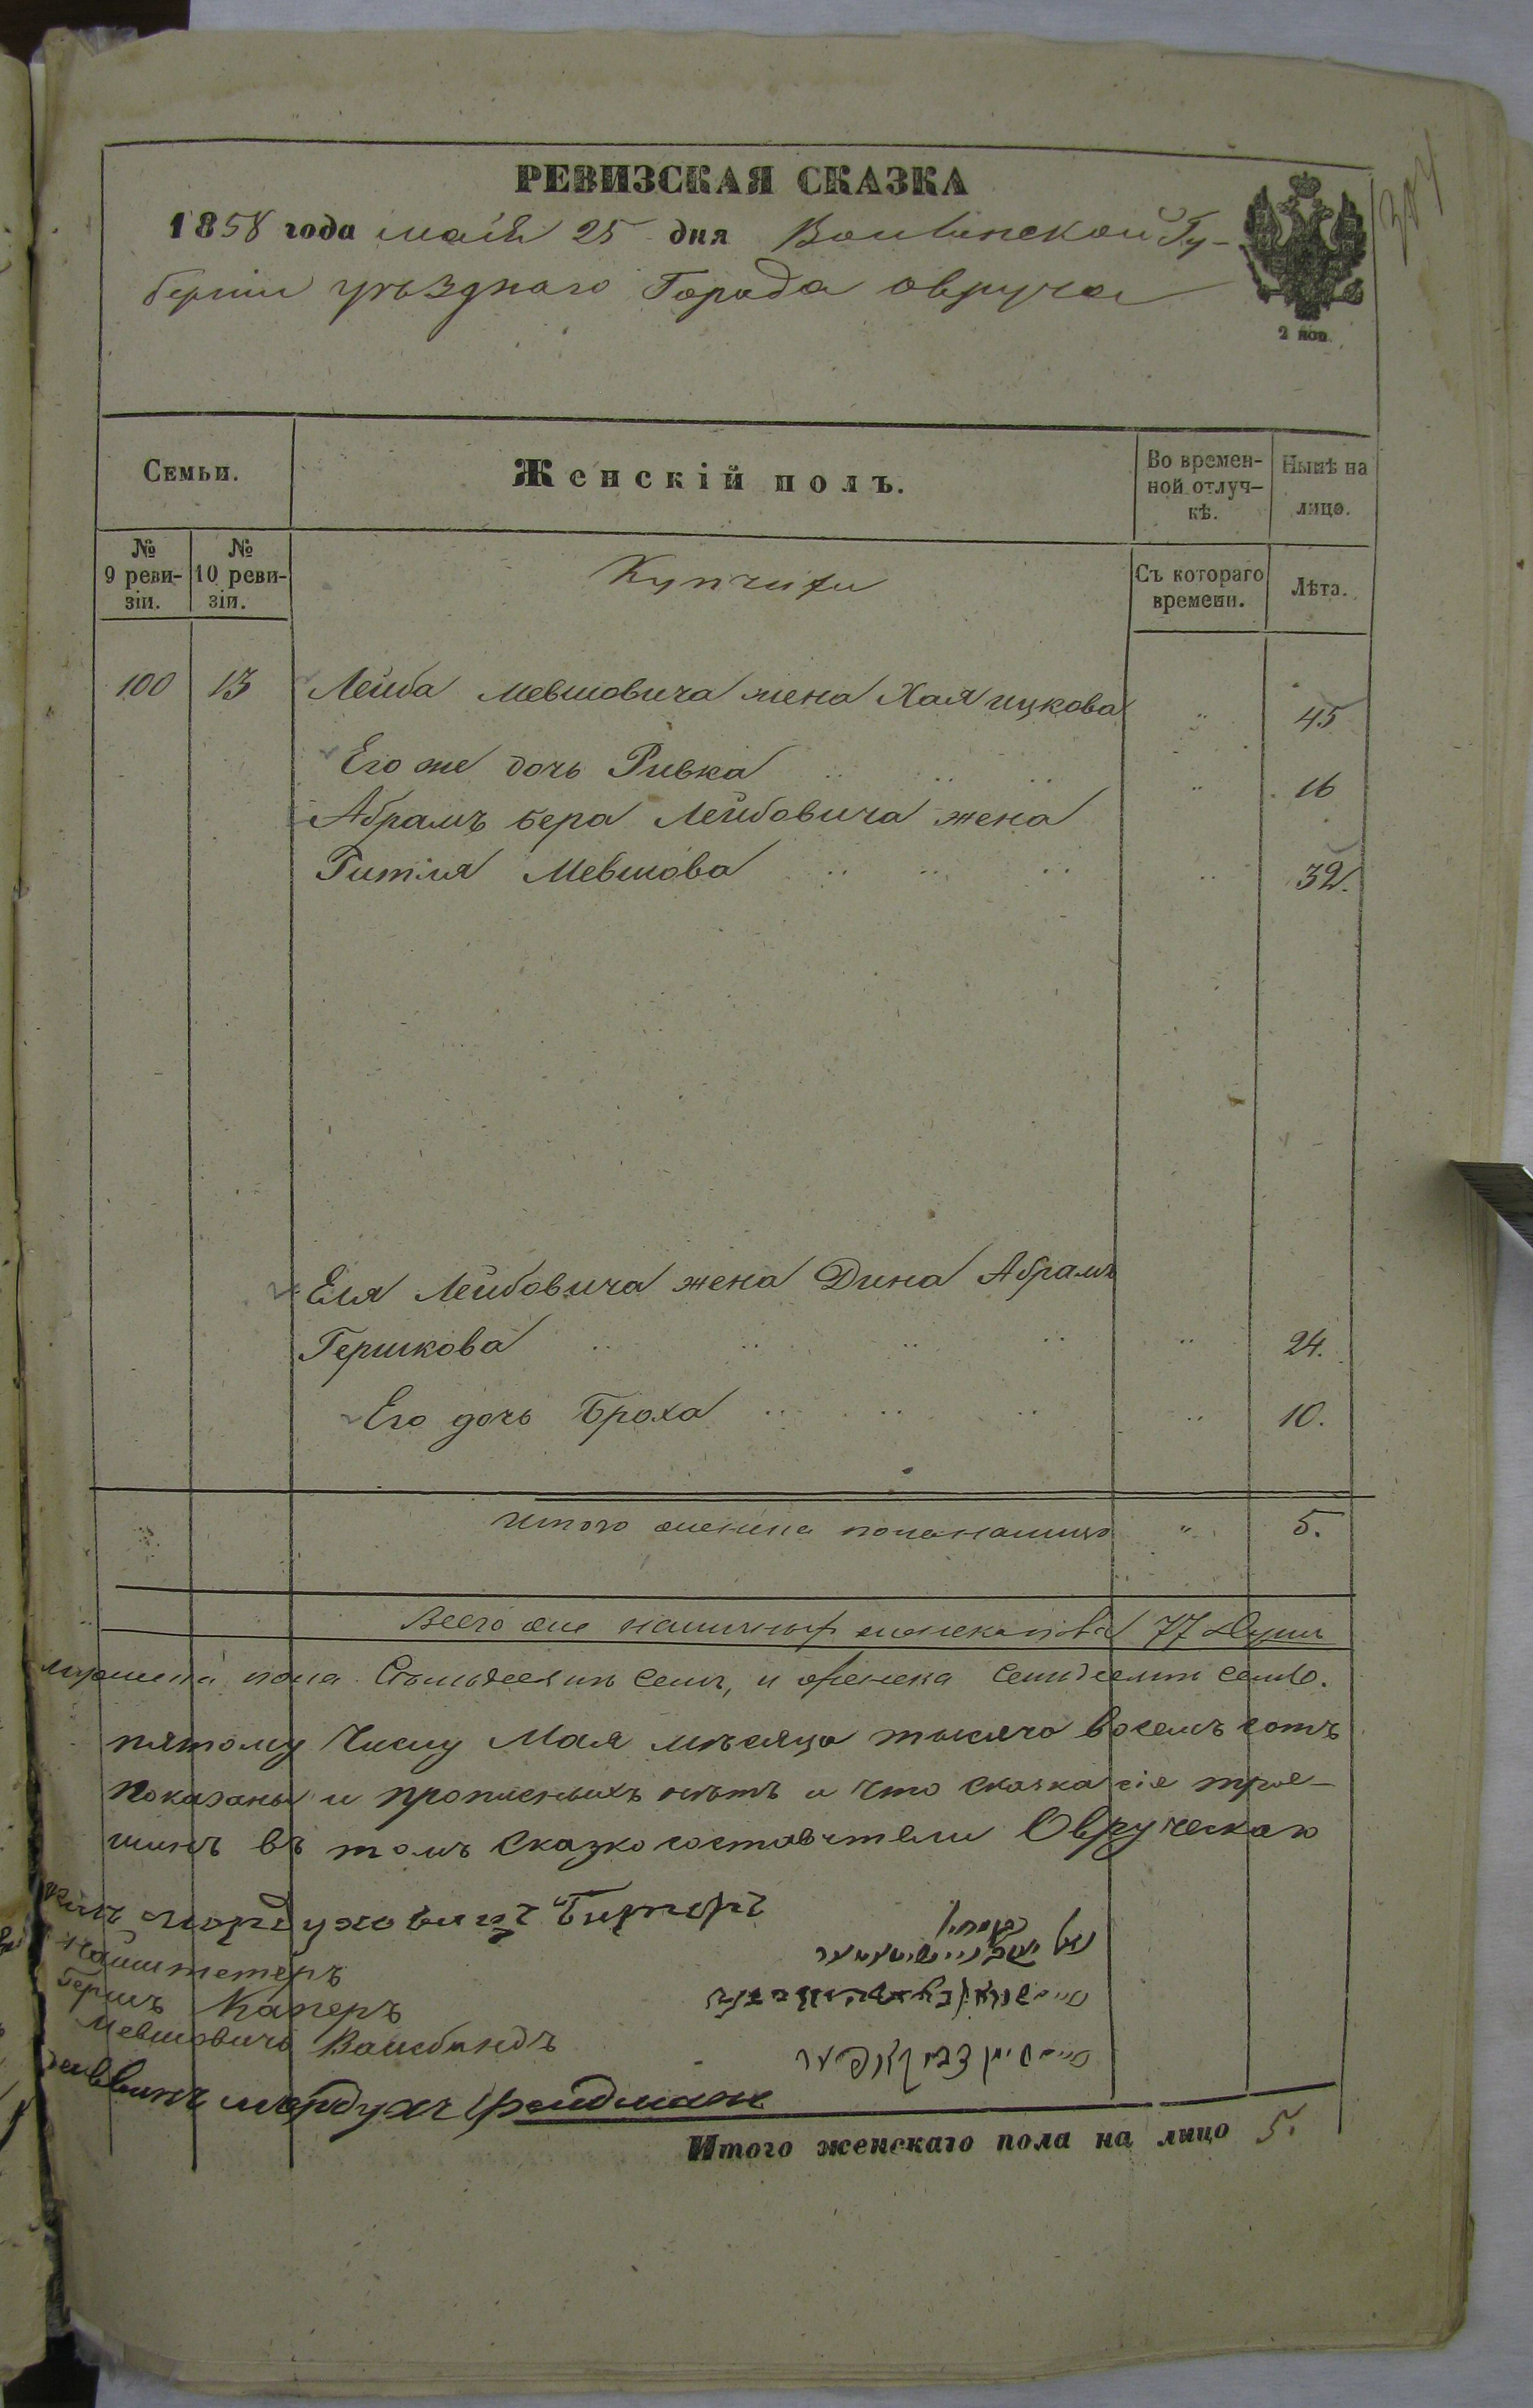 304
РЕВИЗСКАЯ СКАЗКА
1858 года мая 25 дня Волынской Гу-
берніи уѣзднаго Города овруча
2 коп.
Семьи.
Женскій полъ.
Во времен-
ной отлуч-
кѣ.
Нынѣ на
лицо.
№
9 реви-
зіи.
№
10 реви-
зіи.
Купчихи
Съ котораго
времени.
Лѣта.
100 13 Лейба мевшовича жена Хая ицкова " 45
Его же дочь Ривка " 16
Абрамъ бера Лейбовича жена
Гитля Мевшова " 32.
Еля Лейбовича жена Дина Абрамъ
Гершкова " 24.
Его дочь Броха " 10.
Итого женска пола налицо " 5.
Всего же наличныхъ женска пола 77 душъ
пола семь, и женска семидесять семь.
пятому числу Мая мѣсяца тысяча восемъ сотъ
показаны и прописныхъ нѣтъ и что сказка сіе
въ томъ сказкосоставители Овруческаго
Мордуховичъ
Наишметеръ
Гершъ Каперъ
Мевшовичъ Ваисбандъ
мордухъ Фельдманъ
Итого женскаго пола на лицо 5.